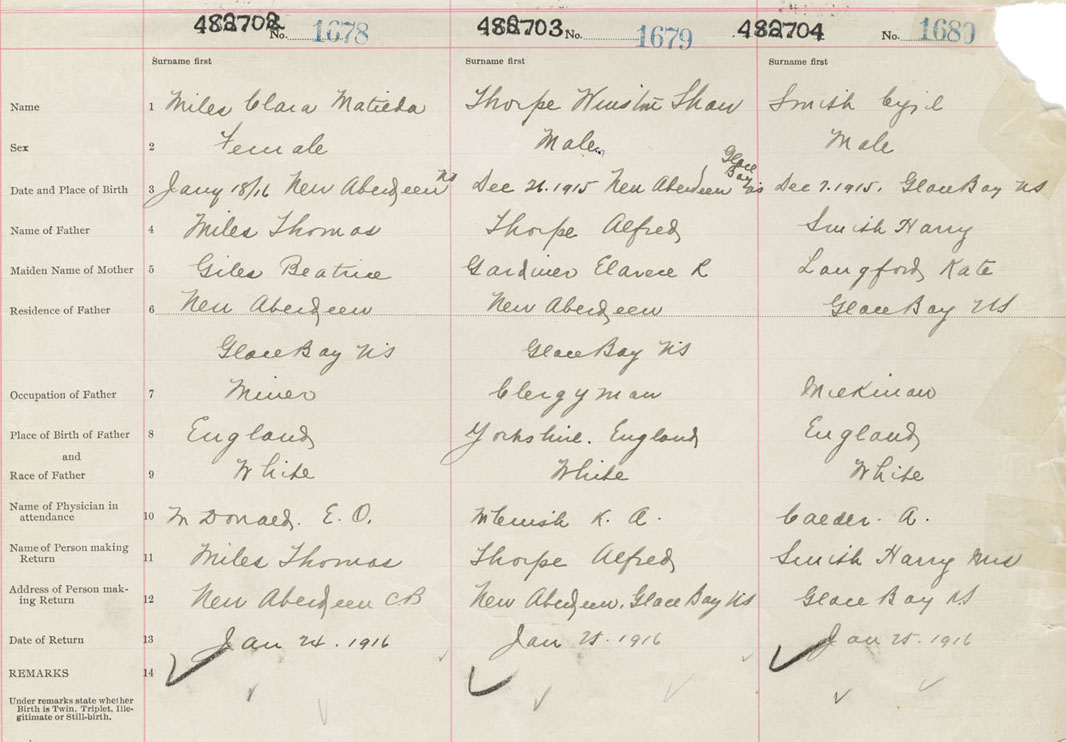 482702 No. 1678 482703 No. 1679 482704 No. 1680
Surname first Surname first Surname first
Name 1 Miles Clara Matilda Thorpe Winston Shaw Smith Cyril
Sex 2 Female Male Male
Glace Bay NS
Date and Place of Birth 3 Jany 18/16 New Aberdeen NS Dec 26. 1915 New Aberdeen Dec 7. 1915. Glace Bay NS
Name of Father 4 Miles Thomas Thorpe Alfred Smith Harry
Maiden Name of Mother 5 Giles Beatrice Gardiner R Langford Kate
Residence of Father 6 New Aberdeen New Aberdeen Glace Bay NS
Glace Bay NS Glace Bay NS
Occupation of Father 7 Miner Clergyman
Place of Birth of Father 8 England Yorkshire. England England
and
Race of Father 9 White White White
Name of Physician in
attendance 10 McDonald. E. O. K. A. Calder. A.
Name of Person making
Return 11 Miles Thomas Thorpe Alfred Smith Harry Mrs
Address of Person mak-
ing Return 12 New Aberdeen CB New Aberdeen. Glace Bay NS Glace Bay NS
Date of Return 13 Jan 24. 1916 Jan 25. 1916 Jan 25. 1916
REMARKS 14
Under remarks state whether
Birth is Twin, Triplet, Ille-
gitimate or Still-birth.